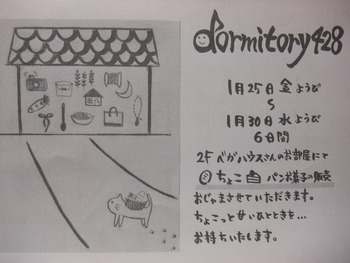 dormitory428
1月25日金ようび
〜
1月30日水ようび
6日間
2F べがハウスさんのお部屋にて
ちょこ パンお菓子の販売
おじゃまさせていただきます。
ちょこっとせいひとときを…
お待ちいたします。